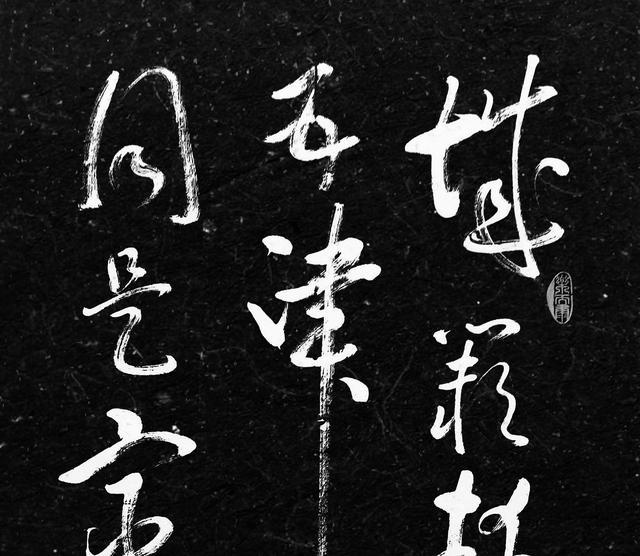 城闕
五津
同是宦